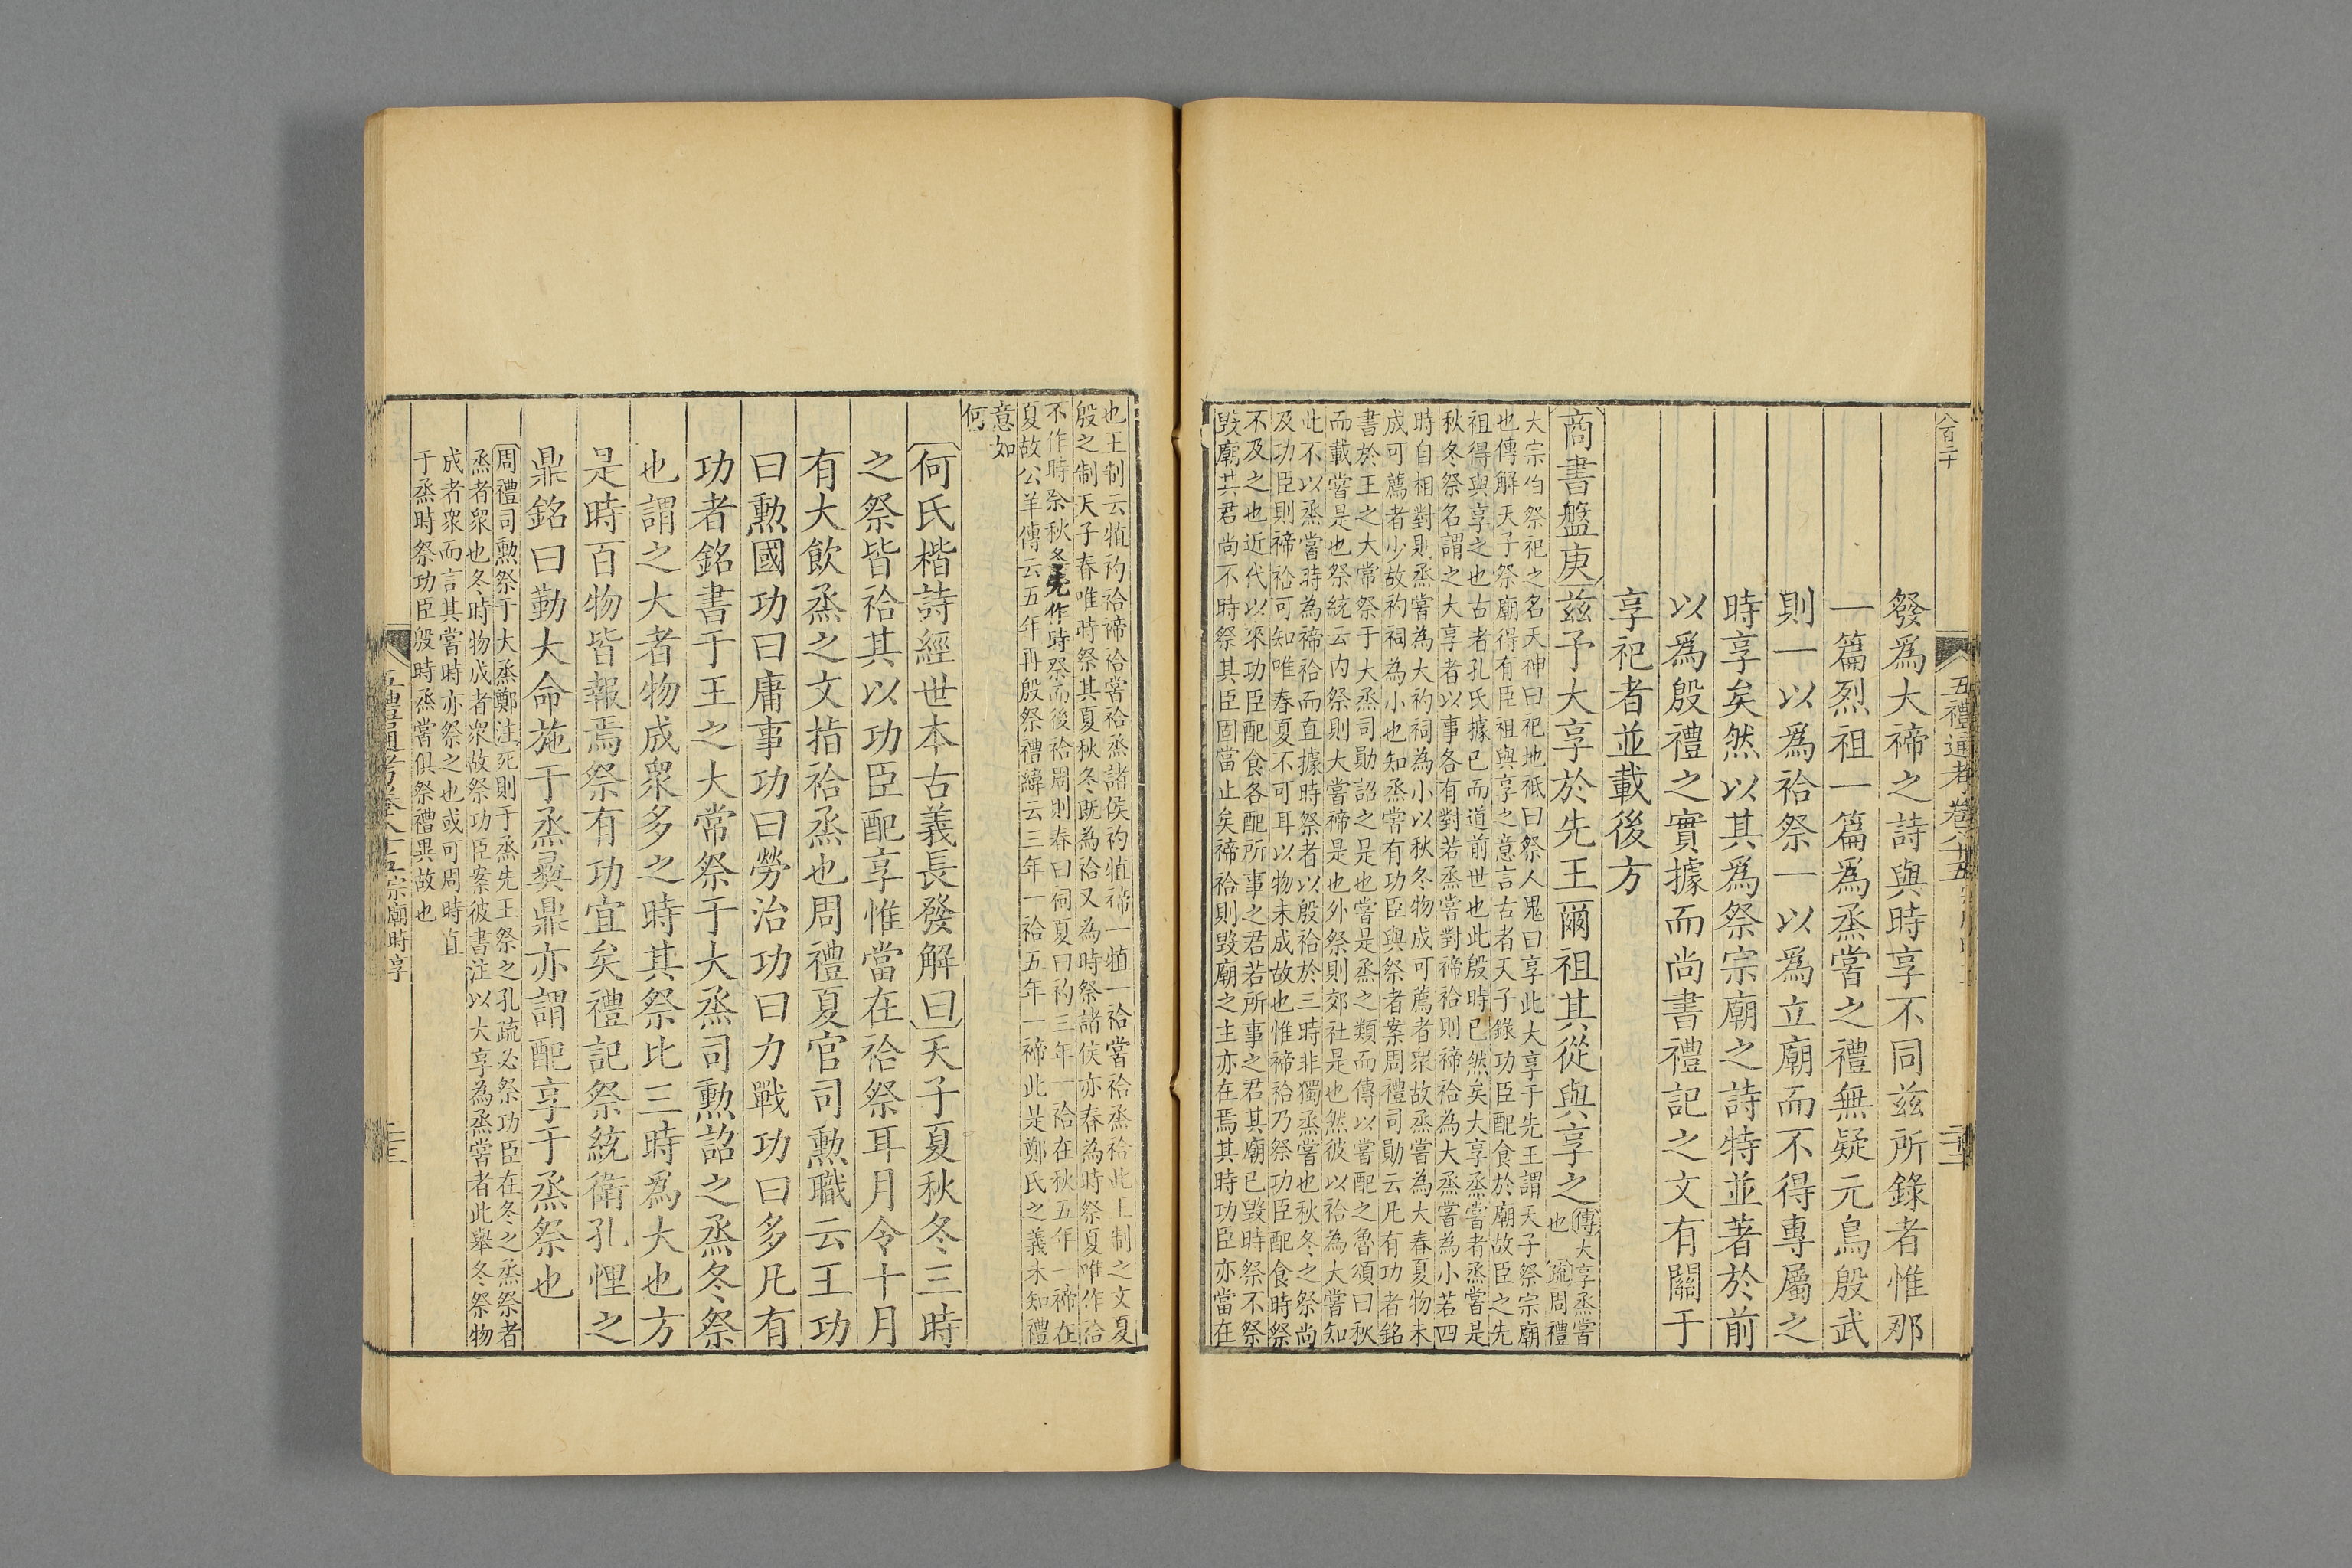 八百二十
五禮通考卷八十五
發爲大禘之詩與時享不同兹所錄者惟那
一篇烈祖一篇爲烝嘗之禮無疑元鳥殷武
則一以爲祫祭一以爲立廟而不得專屬之
時享矣然以其爲祭宗廟之詩特並著於前
以爲殷禮之實據而尚書禮記之文有關于
享祀者並載後方
商書盤庚兹予大享於先王爾祖其從與享之
傳大享烝嘗
也 疏周禮
大宗伯祭祀之名天神曰祀地祗曰祭人鬼曰享此大享于先王謂天子祭宗廟
也傳解天子祭廟得有臣祖與享之意言古者天子錄功臣配食於廟故臣之先
祖得與享之也古者孔氏據已而道前世也此殷時已然矣大享烝嘗者烝嘗是
秋冬祭名謂之大享者以事各有對若烝嘗對禘祫則禘祫為大烝嘗為小若四
時自相對則烝嘗為大礿祠為小以秋冬物成可薦者眾故烝嘗為大春夏物未
成可薦者少故礿祠為小也知烝嘗有功臣與祭者案周禮司勛云凡有功者銘
書於王之大常祭于大烝司勛詔之是也嘗是烝之類而傳以嘗配之魯頌曰秋
而載嘗是也祭統云内祭則大嘗禘是也外祭則郊社是也然彼以祫為大嘗知
此不以烝嘗時為禘祫而直據時祭者以殷祫於三時非獨烝嘗也秋冬之祭尚
及功臣則禘祫可知唯春夏不可耳以物未成故也惟禘祫乃祭功臣配食時祭
不及之也近代以來功臣配食各配所事之君若所事之君其廟已毀時祭不祭
毀廟其君尚不時祭其臣固當止矣禘祫則毀廟之主亦在焉其時功臣亦當在
也王制云犆礿祫禘祫嘗祫烝諸侯礿犆禘一犆一祫嘗祫烝祫此王制之文夏
殷之制天子春唯時祭其夏秋冬既為祫又為時祭諸侯亦春為時祭夏唯作祫
不作時祭秋冬先作時祭而後祫周則春曰祠夏曰礿三年一祫在秋五年一禘在
夏故公羊傳云五年再殷祭禮緯云三年一祫五年一禘此是鄭氏之義未知禮
意如
何
何氏楷詩經世本古義長發解曰天子夏秋冬三時
之祭皆祫其以功臣配享惟當在祫祭耳月令十月
有大飲烝之文指祫烝也周禮夏官司勲職云王功
曰勲國功曰庸事功曰勞治功曰力戰功曰多凡有
功者銘書于王之大常祭于大烝司勲詔之烝冬祭
也謂之大者物成衆多之時其祭比三時爲大也方
是時百物皆報焉祭有功宜矣禮記祭統衛孔悝之
鼎銘曰勤大命施于烝彞鼎亦謂配享于烝祭也
周禮司勲祭于大烝鄭注死則于烝先王祭之孔疏必祭功臣在冬之烝祭者
烝者衆也冬時物成者衆故祭功臣案彼書注以大享為烝嘗者此舉冬祭物
成者衆而言其嘗時亦祭之也或可周時直
于烝時祭功臣殷時烝嘗俱祭禮異故也
五禮通考卷八十五宗廟時享